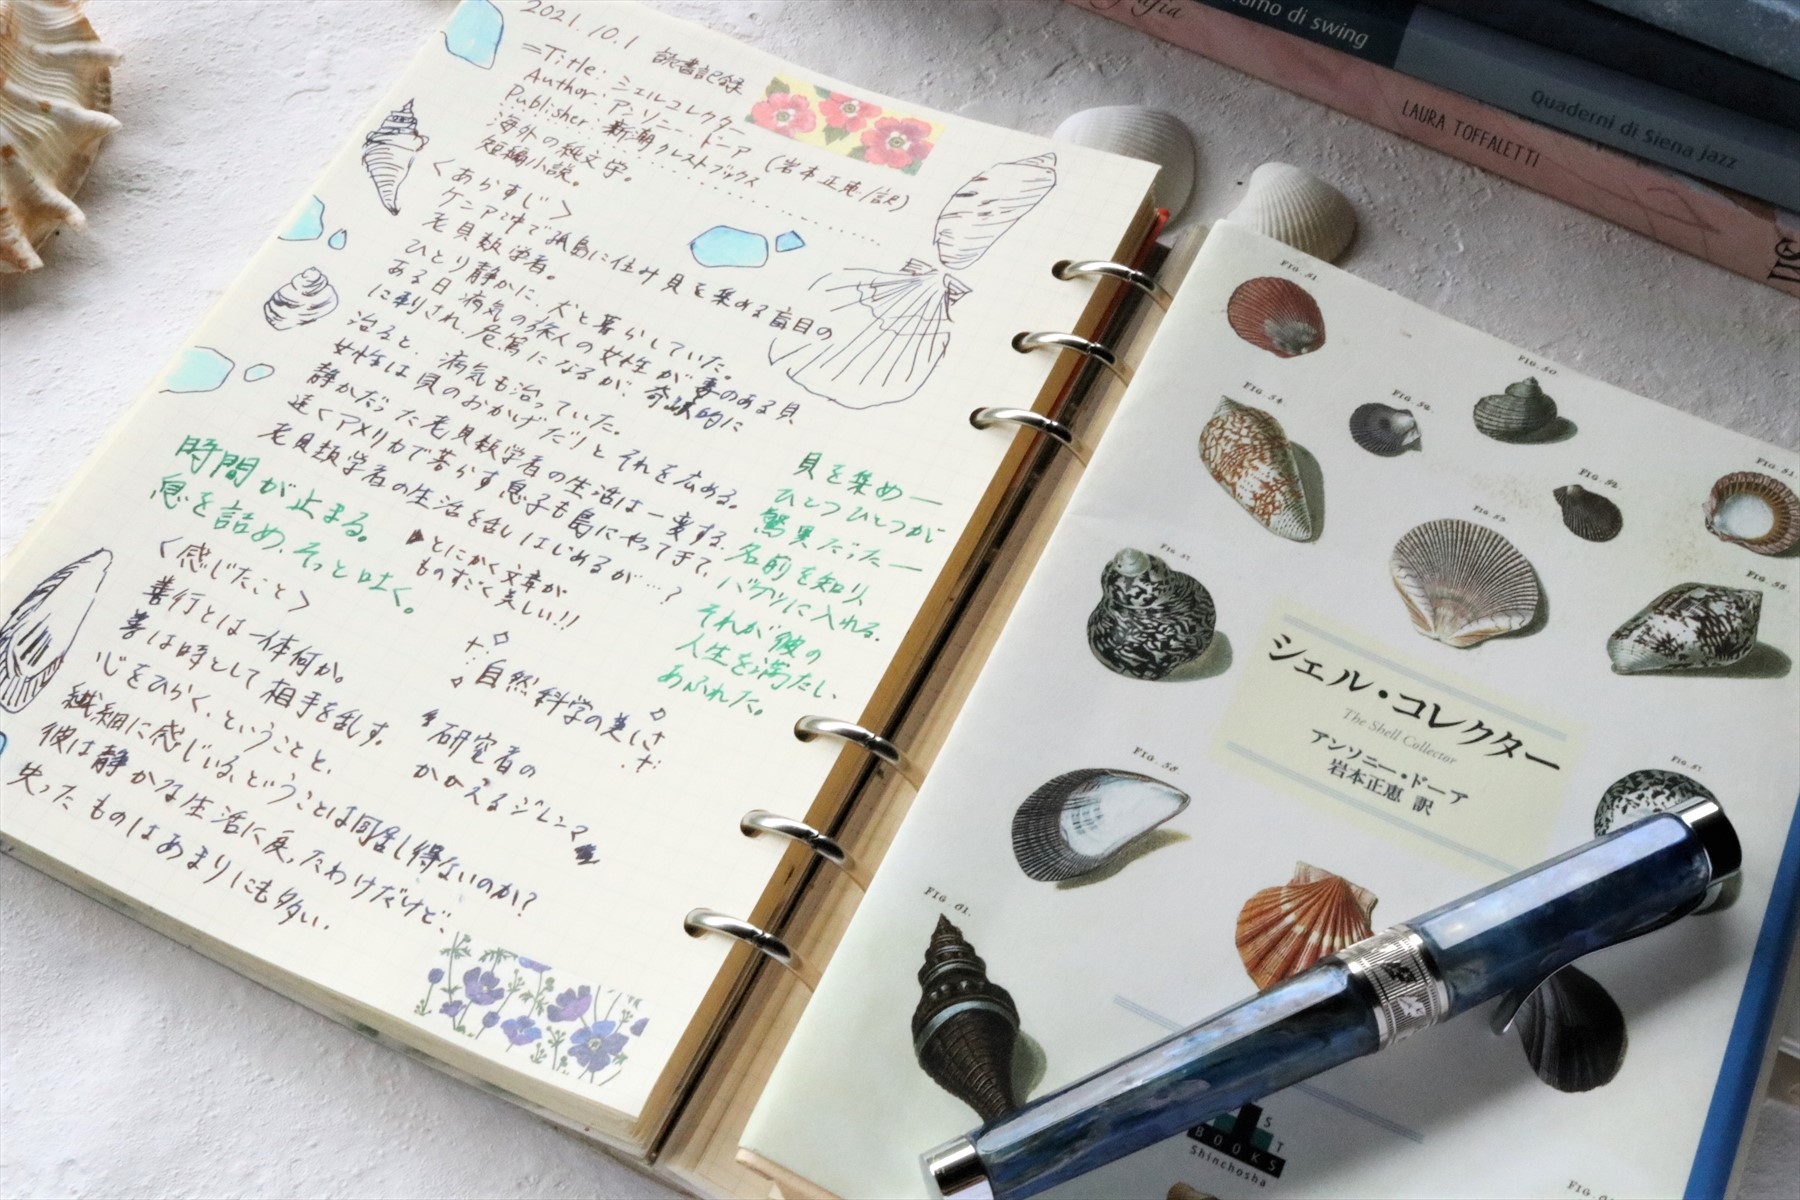 2021.10.1 読書記録
=Title: シェルコレクター
Author: アンソニー・ドーア (岩本正恵/訳)
Publisher: 新潮クレストブックス
海外の純文学。
短編小説。
〈あらすじ〉
ケニア沖で孤島に住み貝を集める盲目の
老貝類学者。
ひとり静かに、犬と暮らしていた。
ある日病気の旅人の女性が毒のある貝
に刺され、危篤になるが、奇跡的に
治ると、病気も治っていた。
女性は貝のおかげだ!とそれを広める。
静かだった老貝類学者の生活は一変する。
遠くアメリカで暮らす息子も島にやってきて、
老貝類学者の生活を乱しはじめるが…?
時間が止まる。
息を詰め、そっと吐く。
とにかく文章が
ものすごく美しい!!
貝を集め―
ひとつひとつが
驚異だった―
名前を知り、
バケツに入れる。
それが彼の
人生を満たし、
あふれた。
〈感じたこと〉
善行とは一体何か。
善は時として相手を乱す。
心をひらく、ということと、
繊細に感じいる、ということは同居し得ないのか?
彼は静かな生活に戻ったわけだけど、
失ったものはあまりにも多い。
自然科学の美しさ
研究者の
かかえるジレンマ
シェル・コレクター
The Shell Collector
アンソニー・ドーア
岩本正恵 訳
FIG. 51.
FIG. 50.
FIG. 54.
FIG. 58.
FIG. 61.
ST
BOOKS
Shinchosha
di swing
Quaderni di Siena Jazz
LAURA TOFFALETTI